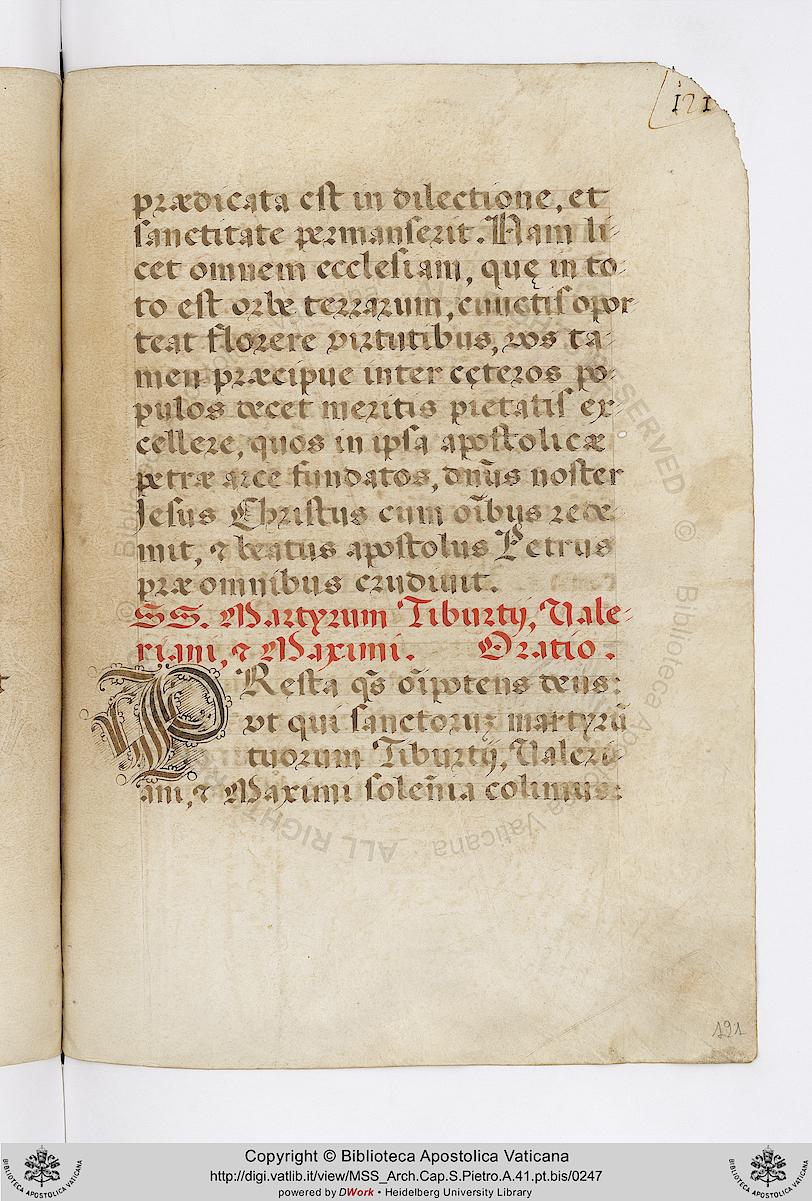 121
prædicata est in dilectione, et
sanctitate permanserit. Nam li-
cet omnem ecclesiam, quę in to-
to est orbe terrarum, cunctis opor
teat florere virtutibus, vos ta-
men præcipue inter cęteros po-
pulos decet meritis pietatis ex-
cellere, quos in ipsa apostolicæ
petræ arce fundatos, dn̄us noster
Jesus Christus cum oībus rede-
mit, ⁊ beatus apostolus Petrus
præ omnibus erudivit.
SS. Martyrum Tiburtij, Vale-
riani, ⁊ Maximi. Oratio.
PResta qs̄ oīpotens deus:
vt qui sanctoruꝫ martyrū
tuorum Tiburtij, Valeri-
ani, ⁊ Maximi solem̄nia colimus:
191
Copyright © Biblioteca Apostolica Vaticana
http://digi.vatlib.it/view/MSS_Arch.Cap.S.Pietro.A.41.pt.bis/0247
powered by DWork • Heidelberg University Library
BIBLIOTECA APOSTOLICA VATICANA
BIBLIOTECA APOSTOLICA VATICANA